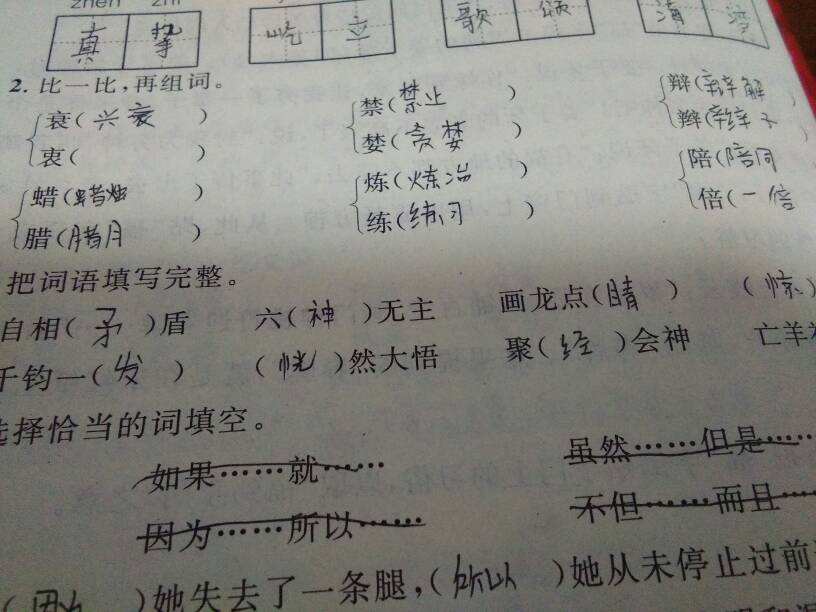 zhen zhi
真 挚 屹 立 歌 颂 清
2. 比一比，再组词。
衰(兴衰) 禁(禁止) 辩(辩解
衷( ) 婪(贪婪) 辫(辫子
蜡(蜡烛) 炼(炼冶) 陪(陪同
腊(腊月) 练(练习) 倍(一倍
把词语填写完整。
自相(矛)盾 六(神)无主 画龙点(睛) (惊)
千钧一(发) (恍)然大悟 聚(经)会神 亡羊补
选择恰当的词填空。
如果……就…… 虽然……但是……
因为……所以…… 不但……而且……
(因为)她失去了一条腿，(所以)她从未停止过前